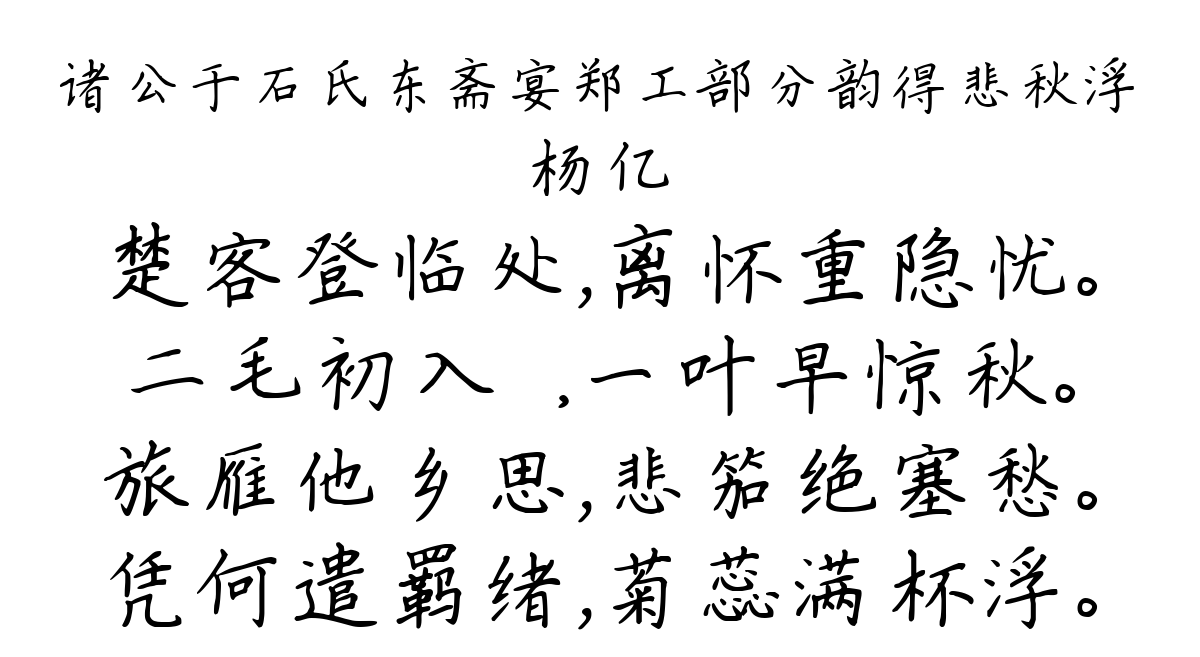 诸公于石氏东斋宴郑工部分韵得悲秋浮
杨亿
楚客登临处,离怀重隐忧。
二毛初入 ,一叶早惊秋。
旅雁他乡思,悲笳绝塞愁。
凭何遣羁绪,菊蕊满杯浮。